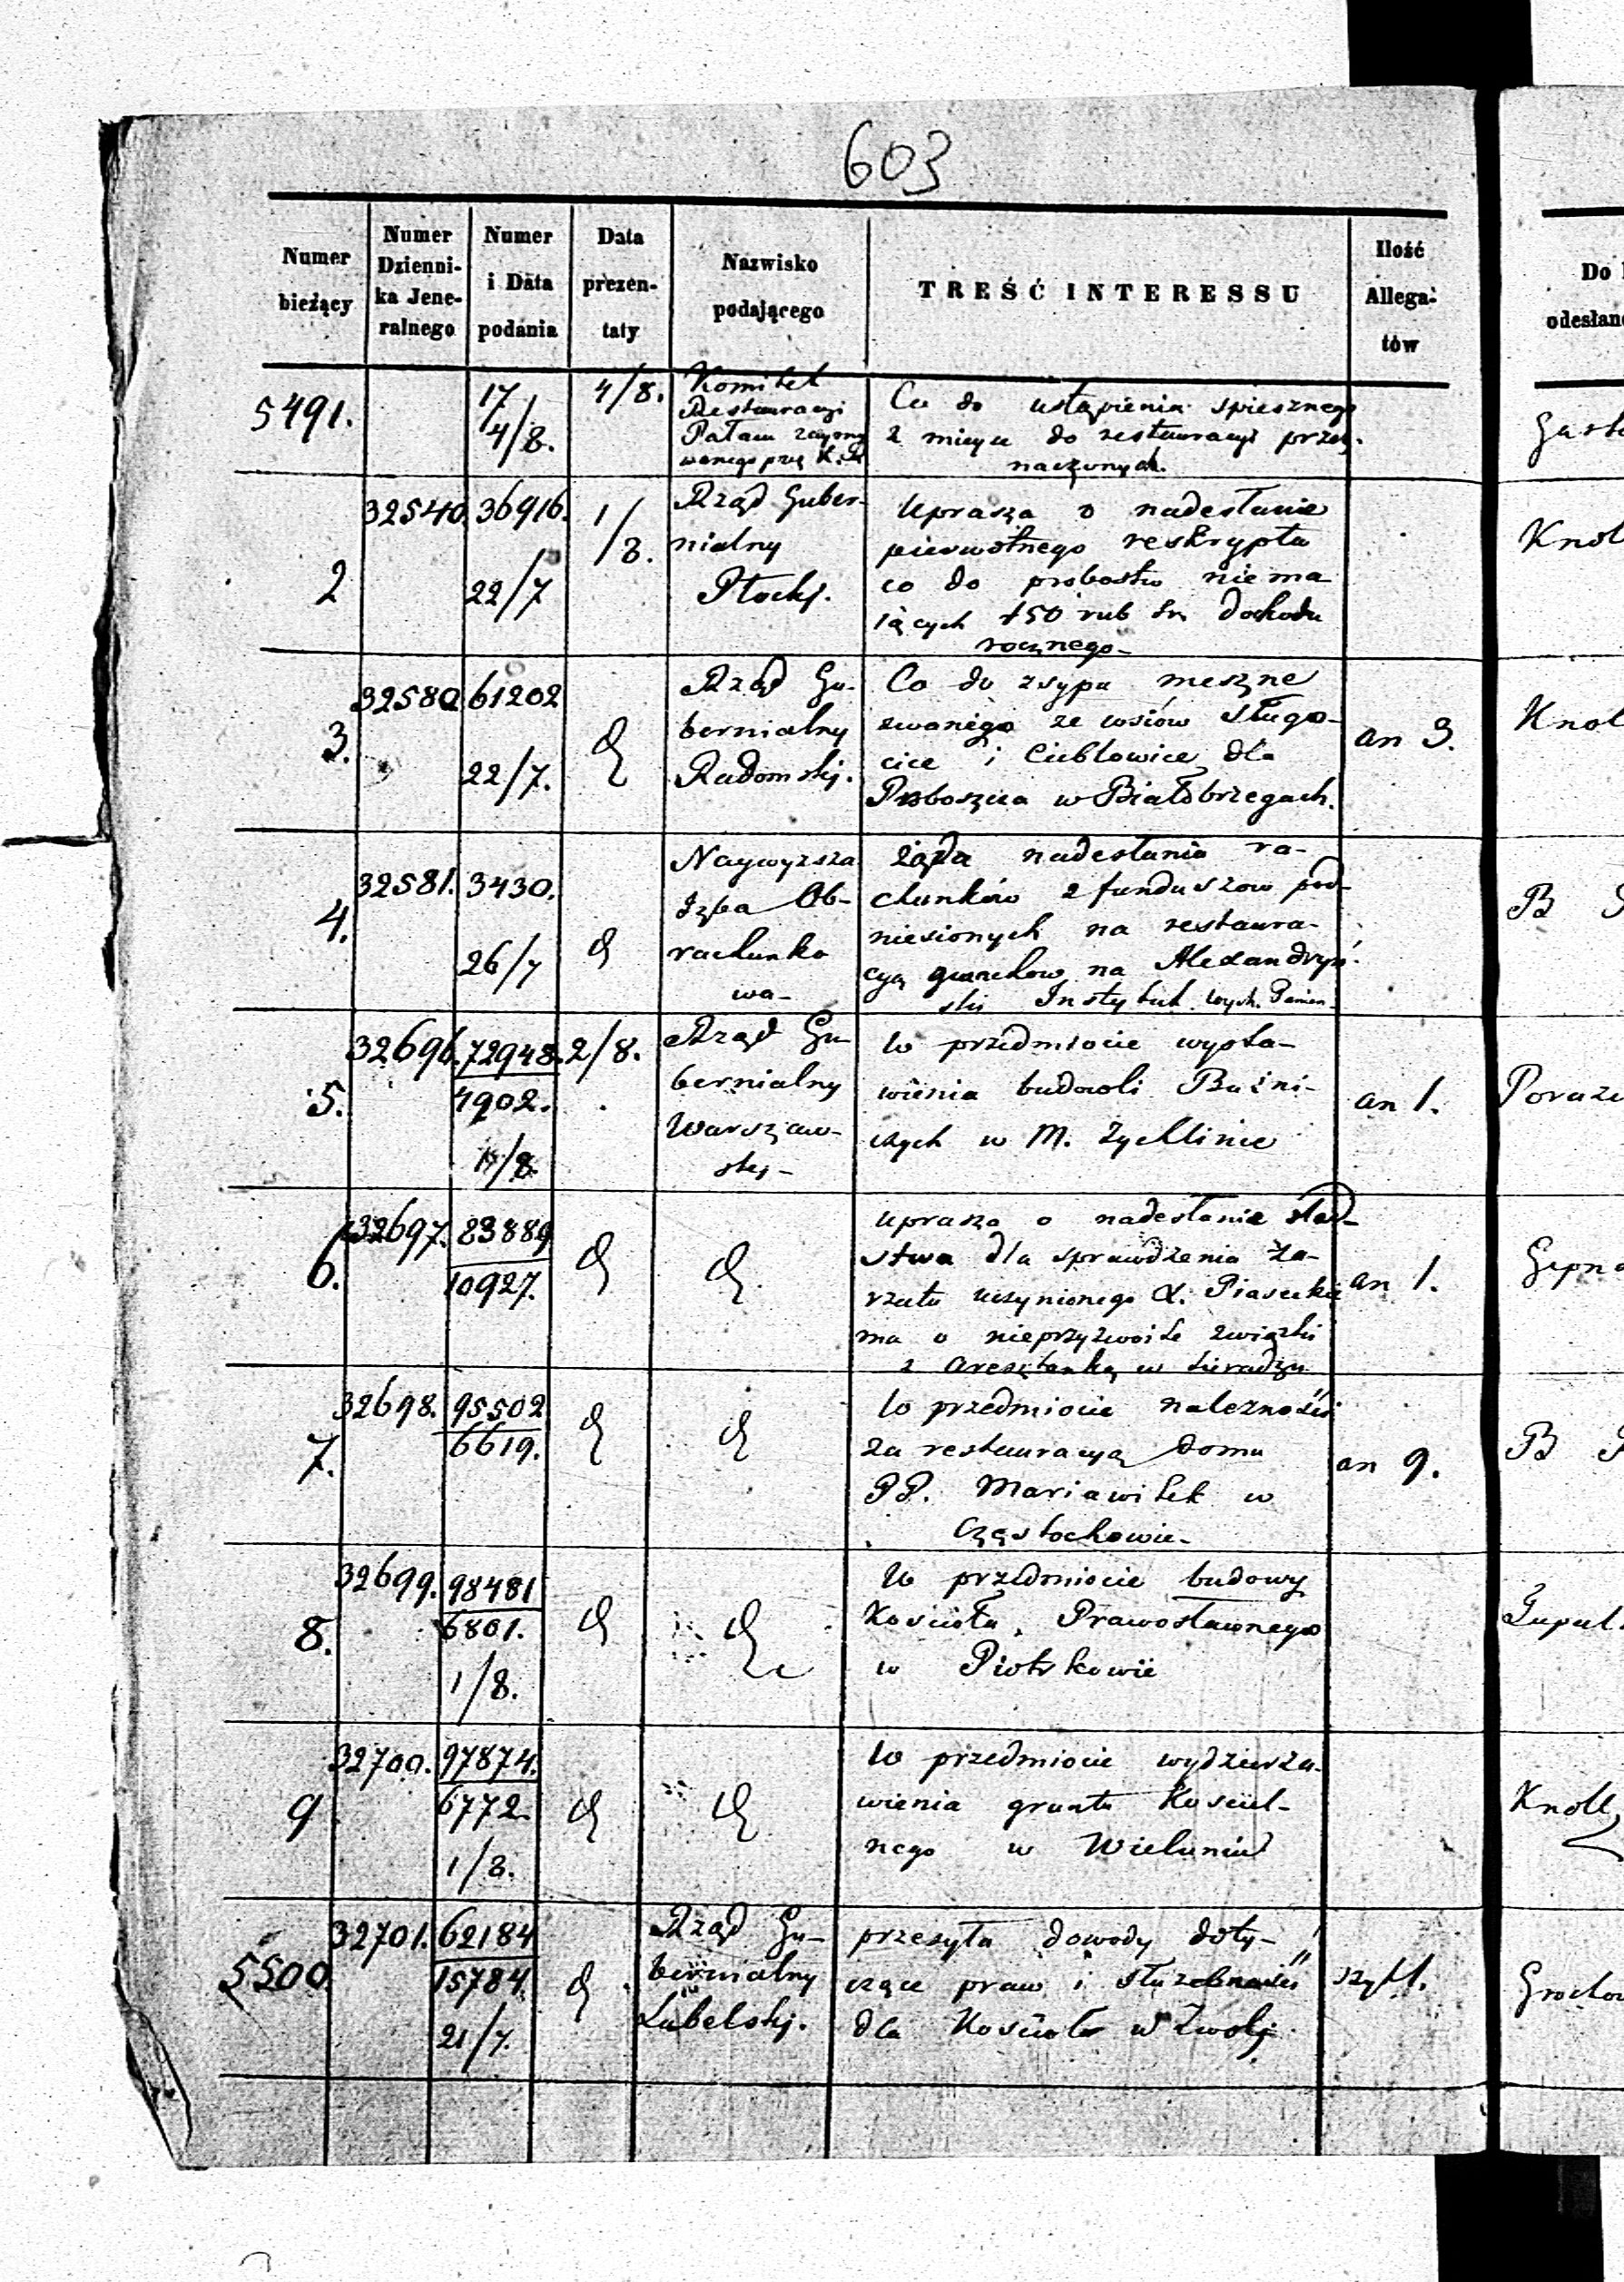 603
Numer bieżący
Numer Dzienni-ka Jene-ralnego
Numer i Data podania
Data prezen-taty
Nazwisko podającego
TREŚĆ INTERESSU
Ilość Allega-tów
Do
odesłan
5491.
17
4/8.
4/8.
Komitet
Restauracyi
Pałacu
Co do ustąpienia spiesznego
2 miejsc do restauracyi przez-
naczonych.
2
32540.
36916.
22/7
1/8.
Rząd Guber-
nialny
Płocki.
Uprasza o nadesłanie
pierwotnego reskryptu
co do probostw niema
iących 150 rub sr. dochodu
rocznego-
Knol
3.
32580
61202
22/7.
Rząd Gu-
bernialny
Radomski.
Co do zsypu meszne
zwanego ze wsiów Sługo-
cice i Ciebłowice dla
Proboszcza w Białobrzegach.
an 3.
Knol
4.
32581.
3430.
26/7
Naywyzsza
Izba Ob-
rachunko
wa-
Żąda nadesłania ra-
chunków z funduszow pod-
niesionych na restaura-
cyą gmachow na Alexandryń
ski Instytut Wych. Panien-
B
5.
32696.
72948.
4902.
1/8.
2/8.
Rząd Gu-
bernialny
Warszaw-
ski-
W przedmiocie wysta-
wienia budowli Buźni-
czych w M. Zychlinie
an 1.
6.
32697.
23889
10927.
Uprasza o nadesłanie sled-
stwa dla sprawdzenia Za-
rzutu uczynionego X. Piasecki
mu o nieprzyzwoite związki
z aresztanką w Sieradzu
an 1.
7.
32698.
95502
6619.
W przedmiocie należności
za restauracyą domu
PP. Mariawitek w
Częstochowie-
an 9.
B
8.
32699.
98481
6801.
1/8.
W przedmiocie budowy
Koscioła Prawosławnego
w Piotrkowie
9
32700.
97874.
6772.
1/8.
W przedmiocie wydzierża-
wienia gruntu Kosciel-
nego w Wieluniu
Knoll
5500.
32701.
62184
15784.
21/7.
Rząd Gu-
bernialny
Lubelski.
przesyła dowody doty-
czące praw i służebności
dla Kościoła w Zwoli